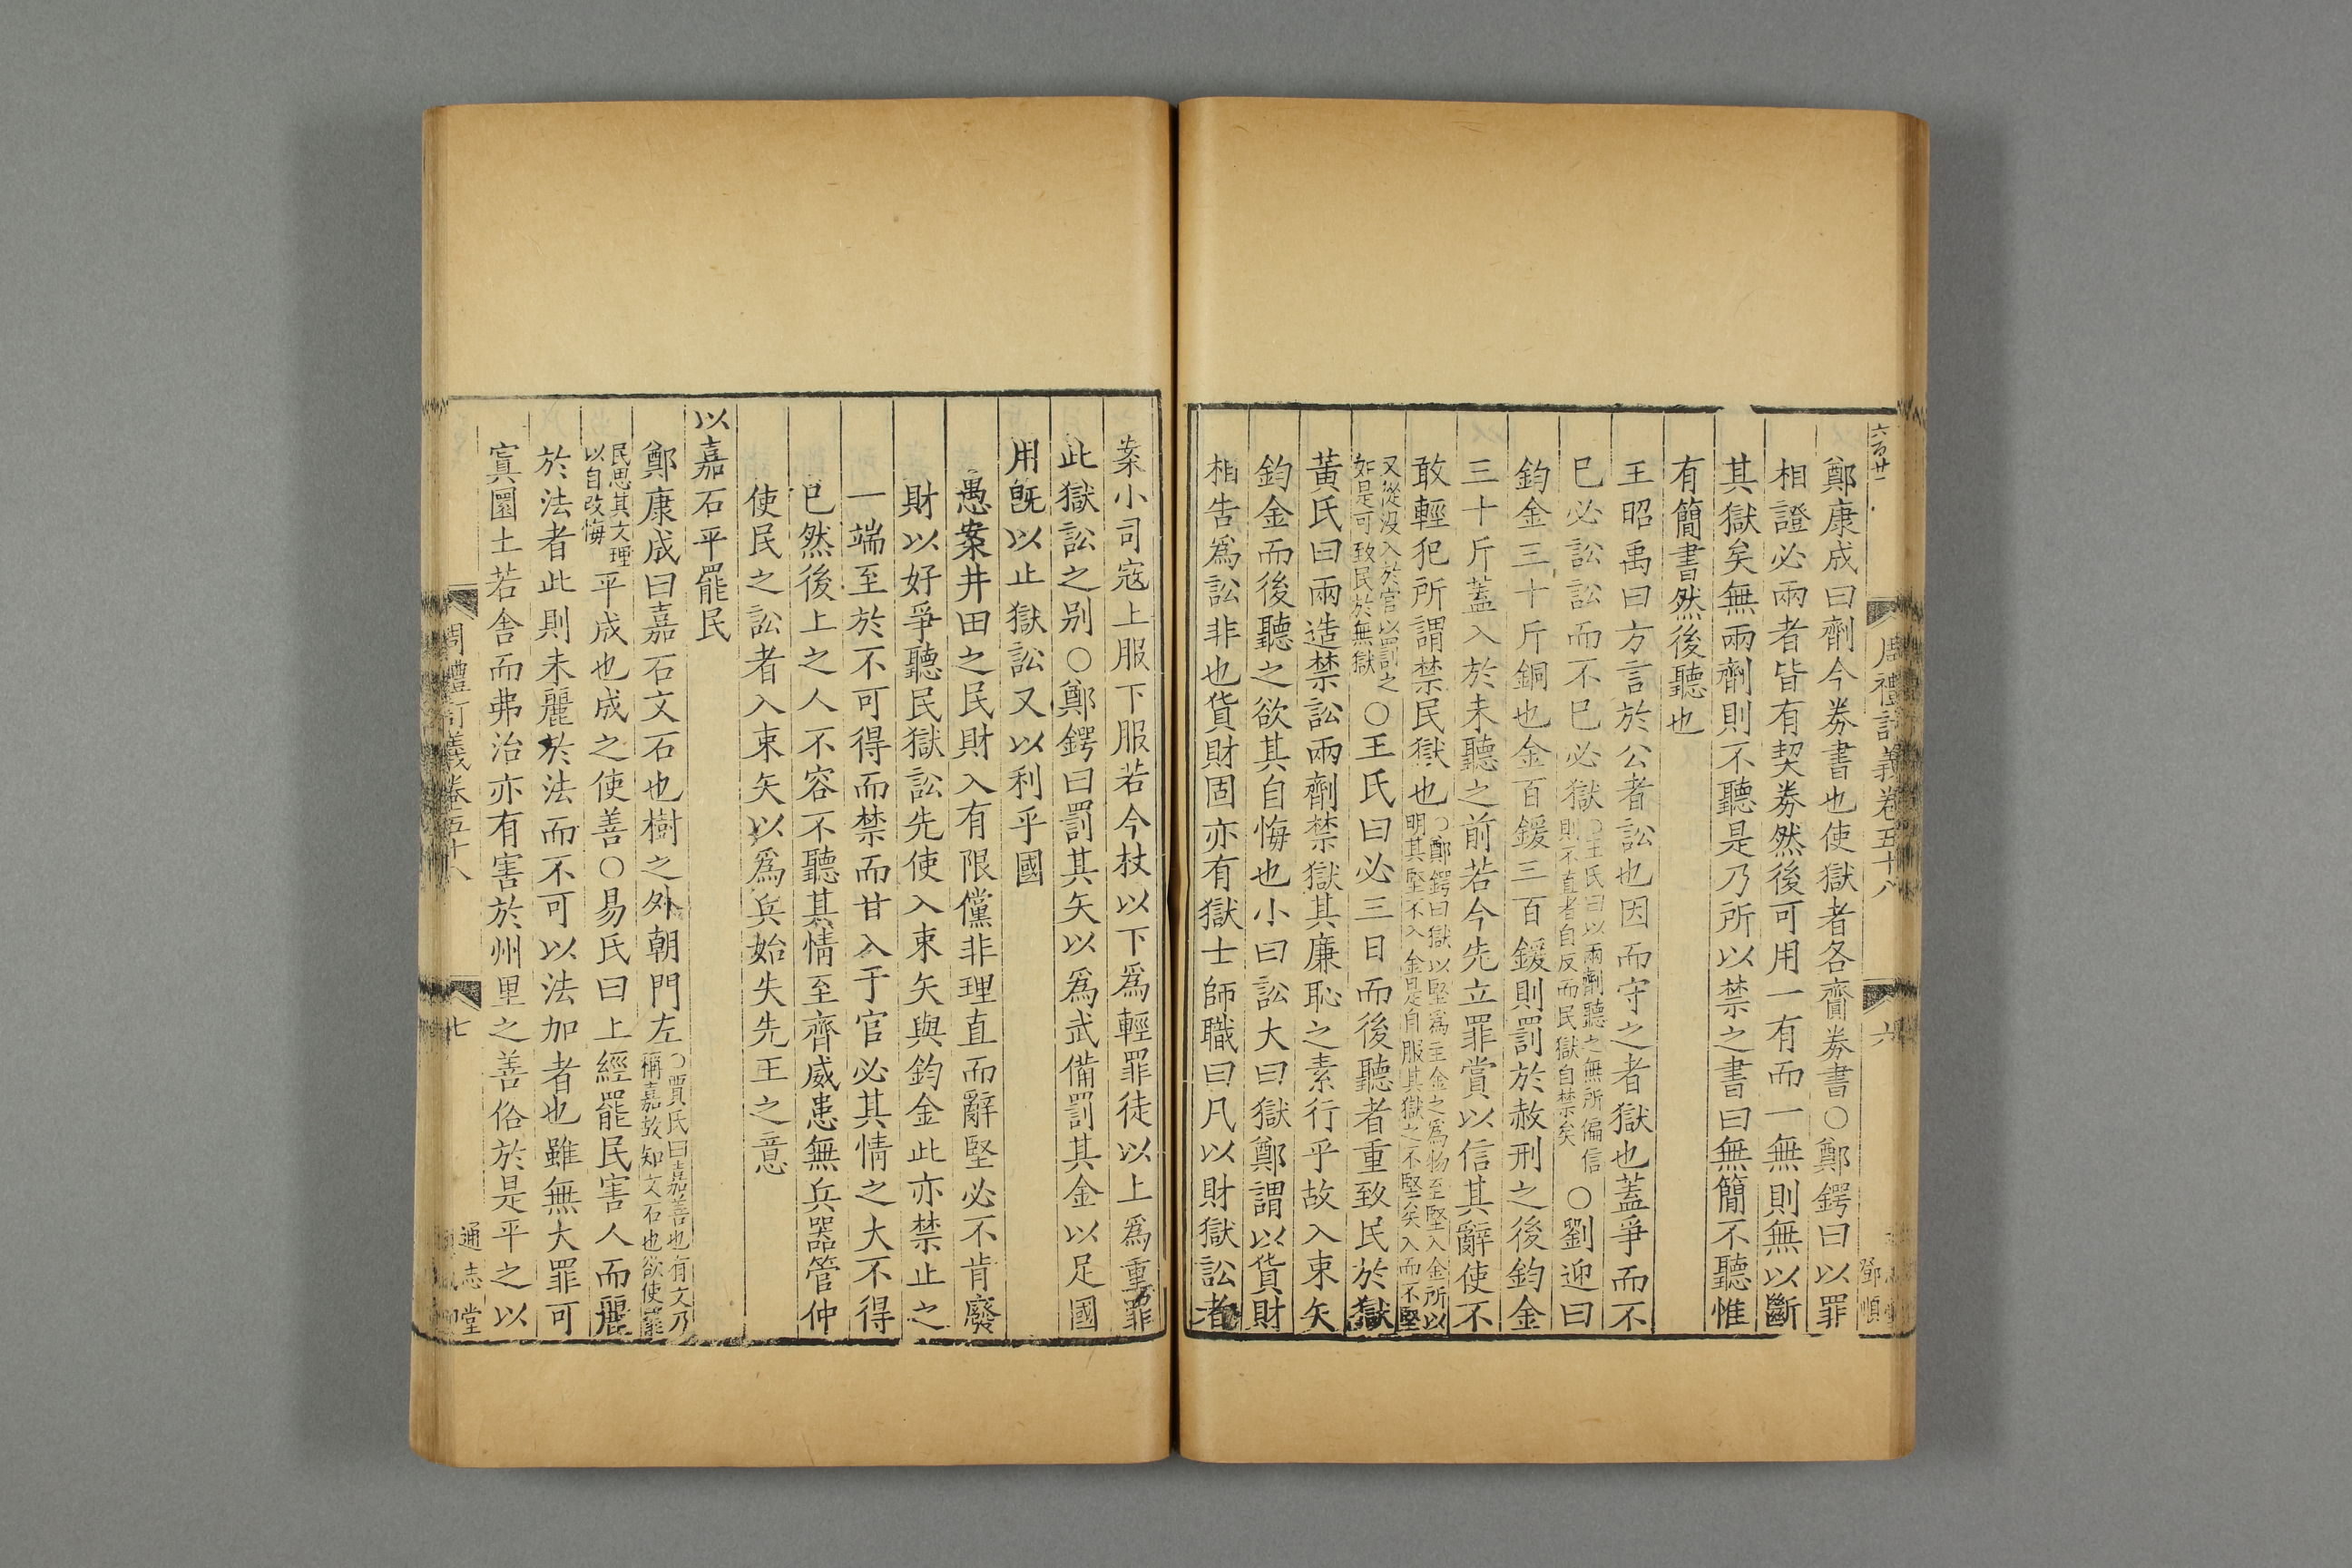 六百廿一
周禮訂義卷五十八
六
鄧順
鄭康成曰劑今券書也使獄者各齎券書○鄭鍔曰以罪
相證必兩者皆有契券然後可用一有而一無則無以斷
其獄矣無兩劑則不聽是乃所以禁之書曰無簡不聽惟
有簡書然後聽也
王昭禹曰方言於公者訟也因而守之者獄也蓋爭而不
已必訟訟而不已必獄○王氏曰以兩劑聽之無所偏信則不直者自反而民獄自禁矣○劉迎曰
鈞金三十斤銅也金百鍰三百鍰則罰於赦刑之後鈞金
三十斤蓋入於未聽之前若今先立罪賞以信其辭使不
敢輕犯所謂禁民獄也○鄭鍔曰獄以堅爲主金之爲物至堅入金所以明其堅不入金是自服其獄之不堅矣入而不堅
又從沒入於官以罰之如是可致民於無獄○王氏曰必三日而後聽者重致民於獄
黃氏曰兩造禁訟兩劑禁獄其廉恥之素行乎故入束矢
鈞金而後聽之欲其自悔也小曰訟大曰獄鄭謂以貨財
相告爲訟非也貨財固亦有獄士師職曰凡以財獄訟者
案小司寇上服下服若今杖以下爲輕罪徒以上爲重罪
此獄訟之别○鄭鍔曰罰其矢以爲武備罰其金以足國
用旣以止獄訟又以利乎國
愚案井田之民財入有限儻非理直而辭堅必不肯廢
財以好爭聽民獄訟先使入束矢與鈞金此亦禁止之
一端至於不可得而禁而甘入于官必其情之大不得
已然後上之人不容不聽其情至齊威患無兵器管仲
使民之訟者入束矢以爲兵始失先王之意
以嘉石平罷民
鄭康成曰嘉石文石也樹之外朝門左○賈氏曰嘉善也有文乃稱嘉故知文石也欲使罷
民思其文理以自改悔平成也成之使善○易氏曰上經罷民害人而麗
於法者此則未麗於法而不可以法加者也雖無大罪可
寘圜土若舍而弗治亦有害於州里之善俗於是平之以
周禮訂義卷五十八
七
通志堂